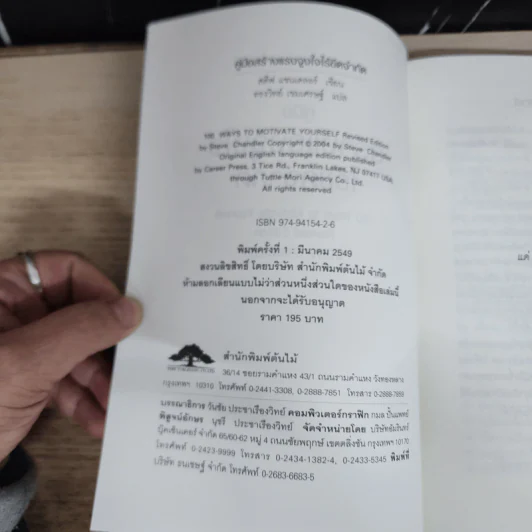 คู่มือสร้างแรงจูงใจไร้ขีดจำกัด
สตีฟ แชนเดลอร์ เขียน
ทองวิทย์ เขมเศรษฐ์ แปล
100 WAYS TO MOTIVATE YOURSELF Revised Edition
by Steve Chandler Copyright © 2004 by Steve Chandler
Original English language edition published
by Career Press, 3 Tice Rd., Franklin Lakes, NJ 07417 USA
through Tuttle-Mori Agency Co., Ltd.
All rights reserved
ISBN 974-94154-2-6
พิมพ์ครั้งที่ 1 : มีนาคม 2549
สงวนลิขสิทธิ์ โดยบริษัท สำนักพิมพ์ต้นไม้ จำกัด
ห้ามลอกเลียนแบบไม่ว่าส่วนหนึ่งส่วนใดของหนังสือเล่มนี้
นอกจากจะได้รับอนุญาต
ราคา 195 บาท
สำนักพิมพ์ต้นไม้
36/14 ซอยรามคำแหง 43/1 ถนนรามคำแหง วังทองหลาง
กรุงเทพฯ 10310 โทรศัพท์ 0-2441-3308, 0-2888-7851 โทรสาร 0-2888-7859
บรรณาธิการ วันชัย ประชาเรืองวิทย์ คอมพิวเตอร์กราฟิก กมล ปั้นแพทย์
พิสูจน์อักษร นุชรี ประชาเรืองวิทย์ จัดจำหน่ายโดย บริษัทอัมรินทร์
บุ๊คเซ็นเตอร์ จำกัด 65/60-62 หมู่ 4 ถนนชัยพฤกษ์ เขตตลิ่งชัน กรุงเทพฯ 10170
โทรศัพท์ 0-2423-9999 โทรสาร 0-2434-1382-4, 0-2433-5345 พิมพ์ที่
บริษัท ธนเชษฐ์ จำกัด โทรศัพท์ 0-2683-6683-5
แค่